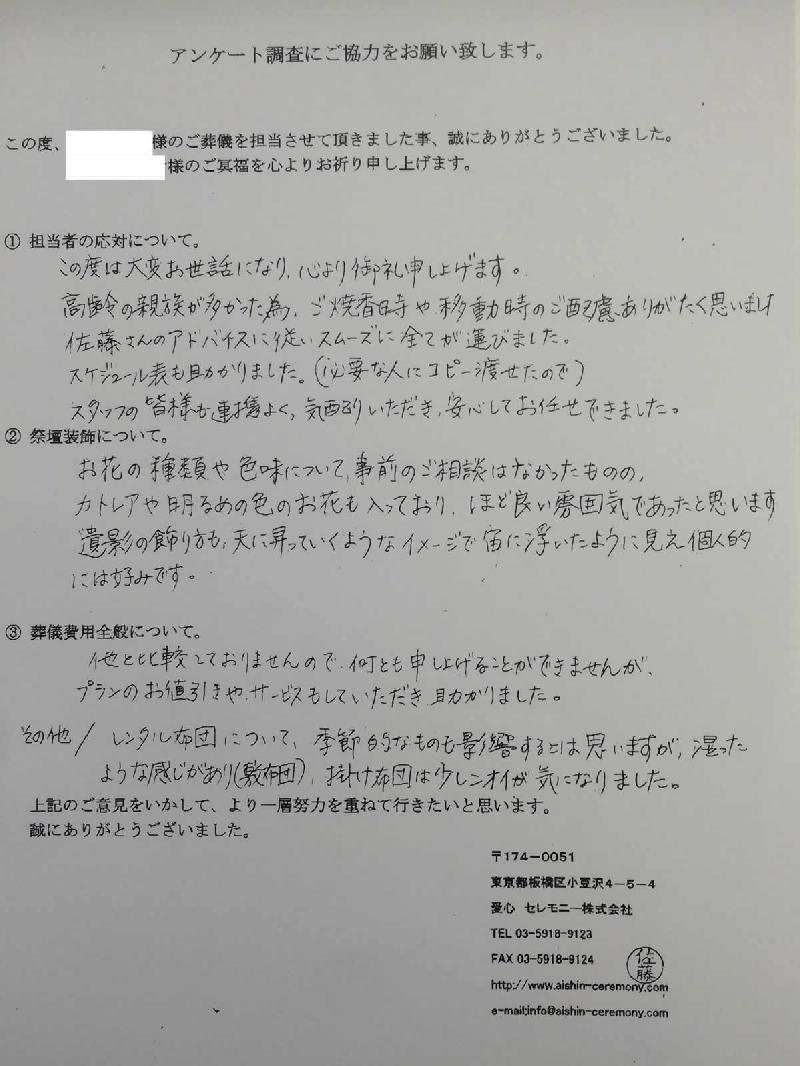 アンケート調査にご協力をお願い致します。
この度、様のご葬儀を担当させて頂きました事、誠にありがとうございました。
様のご冥福を心よりお祈り申し上げます。
① 担当者の応対について。
この度は大変お世話になり、心より御礼申し上げます。
高齢の親族が多かった為、ご焼香時や移動時のご配慮、ありがたく思います
佐藤さんのアドバイスに従いスムーズに全てが運びました。
スケジュール表も助かりました。(必要な人にコピー渡せたので)
スタッフの皆様も連携よく、気配りいただき、安心してお任せできました。
② 祭壇装飾について。
お花の種類や色味について、事前のご相談はなかったものの、
カトレアや明るめの色のお花も入っており、ほど良い雰囲気であったと思います
遺影の飾り方も、天に昇っていくようなイメージで宙に浮いたように見え個人的
には好みです。
③ 葬儀費用全般について。
他と比較しておりませんので、何とも申し上げることができませんが、
プランのお値引きや、サービスもしていただき、助かりました。
その他/ レンタル布団について、季節的なものも影響するとは思いますが、湿った
ような感じがあり(敷布団)、掛け布団は少しニオイが気になりました。
上記のご意見をいかして、より一層努力を重ねて行きたいと思います。
誠にありがとうございました。
〒174-0051
東京都板橋区小豆沢4-5-4
愛心 セレモニー株式会社
TEL 03-5918-9123
FAX 03-5918-9124
佐藤
http://www.aishin-ceremony.com
e-mail;info@aishin-ceremony.com